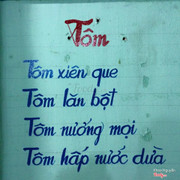 Tôm
Tôm xiên que
Tôm lăn bột
Tôm nướng mọi
Tôm hấp nước dừa